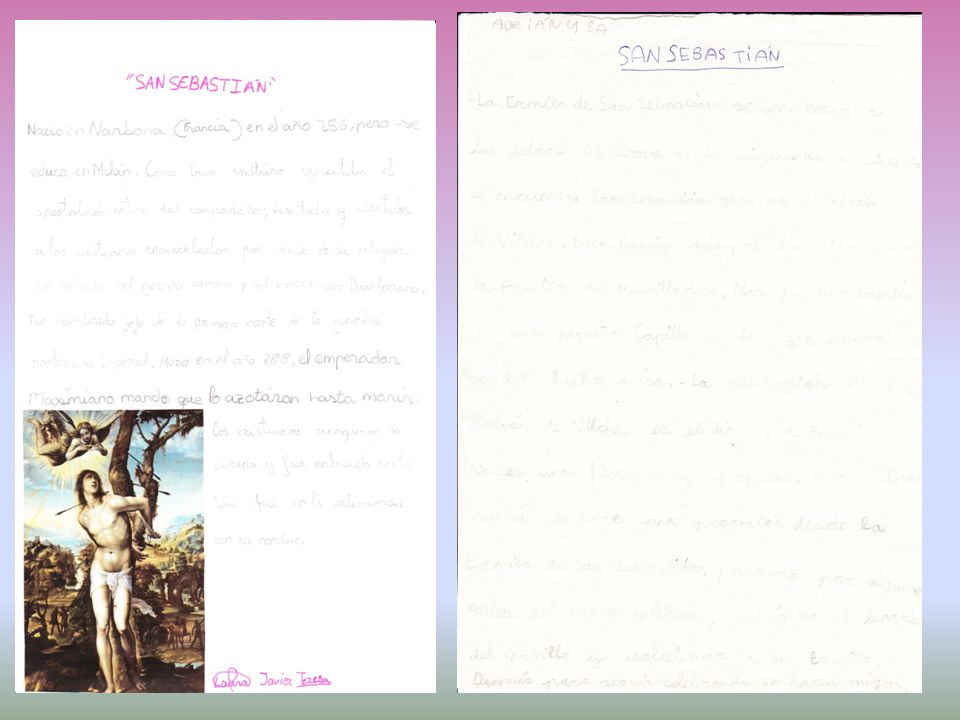 "SAN SEBASTIÁN"
Nació en Narbona (Francia) en el año 256, pero se
educo en Milán. Como buen cristiano ejercitaba el
apostolado entre sus compañeros, visitaba y alentaba
a los cristianos encarcelados por causa de su religión.
Fue soldado del ejercito romano y del emperador Diocleciano.
Fue nombrado jefe de la primera corte de la guardia
pretoriana imperial. Murio en el año 288, el emperador
Maximiano mando que lo azotaran hasta morir.
los cristianos recogieron su
y fue enterrado en la
Vía Apia en la
con su nombre.
Javier Teresa
ADRIÁN Y
SAN SEBASTIÁN
-La Ermita de San Sebastián se encuentra a
las faldas del cerro de la Virgen. En su interior
se encuentra San Sebastián que es el Patrón
de Vilches. Esta Ermita siempre ha sido
la Ermita del Humilladero. Mas que una Ermita,
una pequeña Capilla en la que nunca
se ha hecho misa. -La celebración de
patrón de Vilches es el día 20 de Enero.
No es una fiesta muy popular,
se hace una procesión desde la
Ermita de San Sebastián, pasando por algunas
calles del casco antiguo, al barrio
del Cerrillo y a su Ermita,
Después para seguir celebrando se hacen migas,